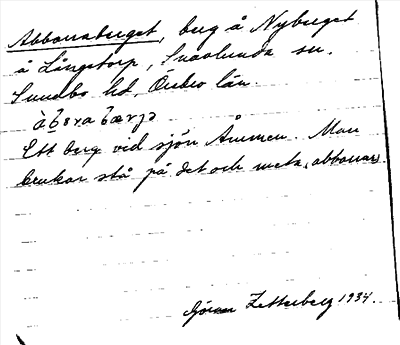 Abborraberget, berg å Nyberget
å Långetorp, Snavlunda sn.
Sundbo hd, Örebro län.
Ett berg vid sjön Åmmen. Man
brukar stå på det och meta abborrar.
Göran Zetterberg 1934.